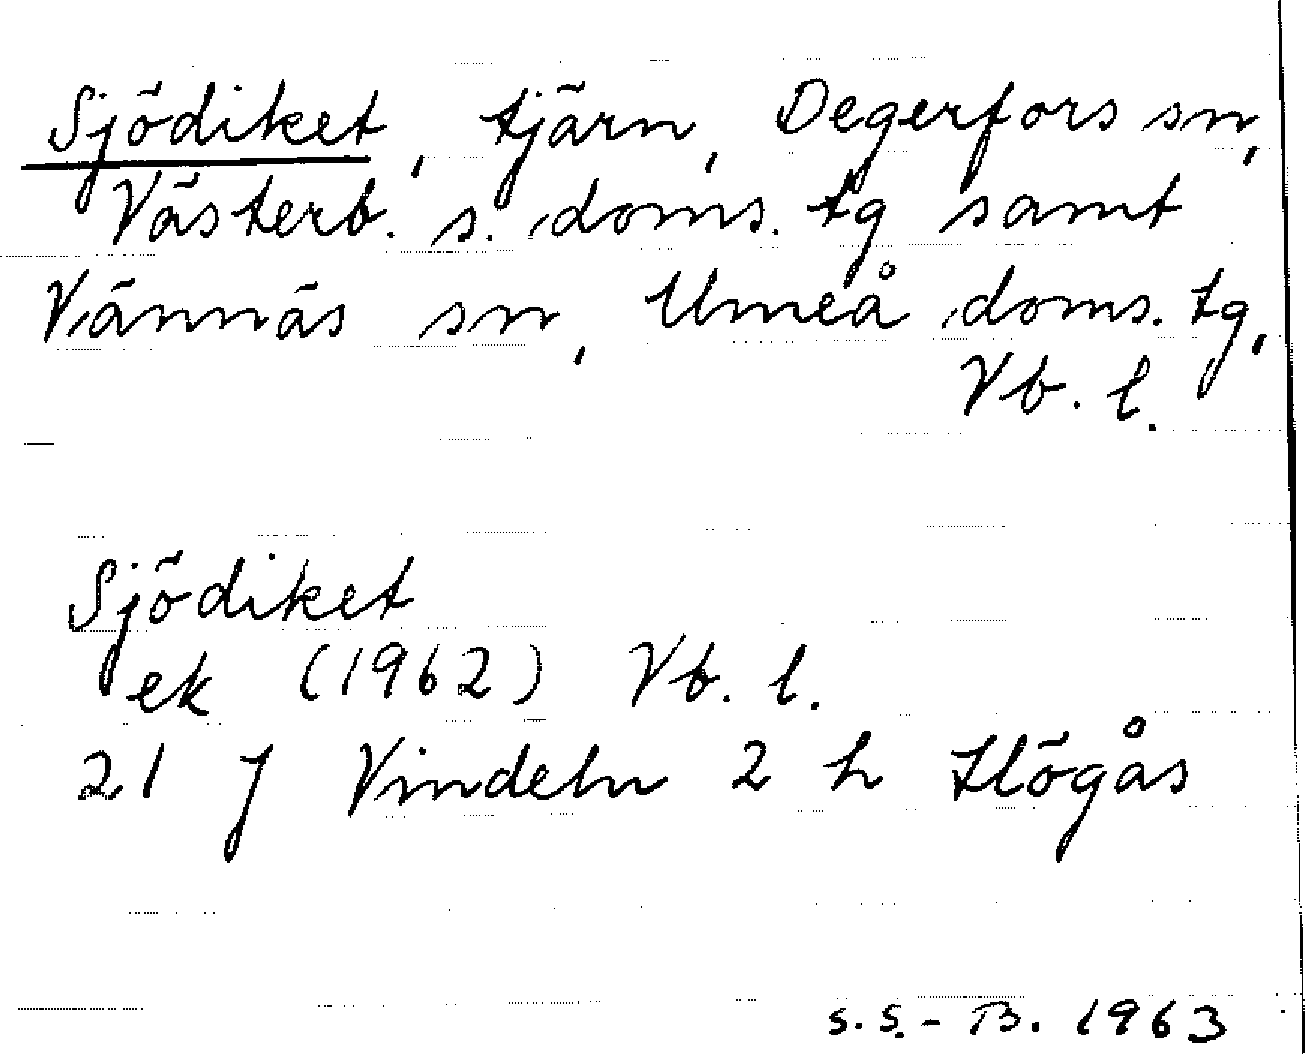 Sjödiket, tjärn, Degerfors sn,
Västerb. s. doms. tg samt
Vännäs sn, Umeå doms. tg,
Vb. l.
Sjödiket
ek (1962) Vb. l.
21 J Vindeln 2 h Högås
S.S.-B. 1963